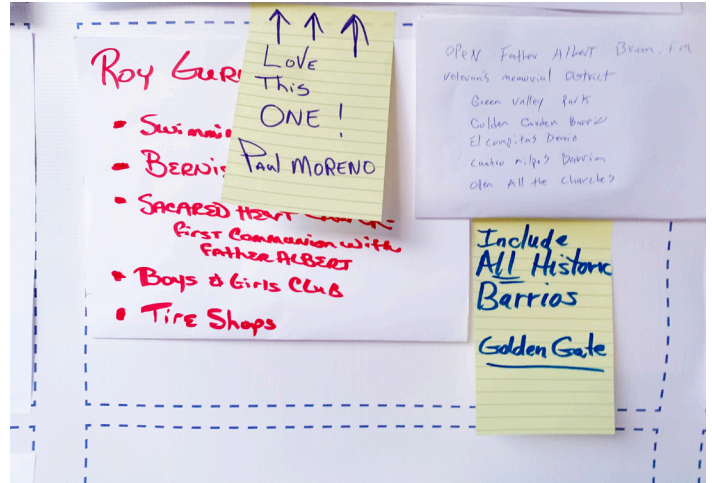 Roy Gur
• Swimmi
• Berni
• Sacared Heart
First Communion with
Father Albert
• Boys & Girls Club
• Tire Shops
Love
This
ONE!
Paul MORENO
OPEN Father Albert
Veteran's memorial District
Green Valley Park
Golden Garden Barrio
El
Cuatro Milpas Barrio
Open All the Churches
Include
All Historic
Barrios
Golden Gate